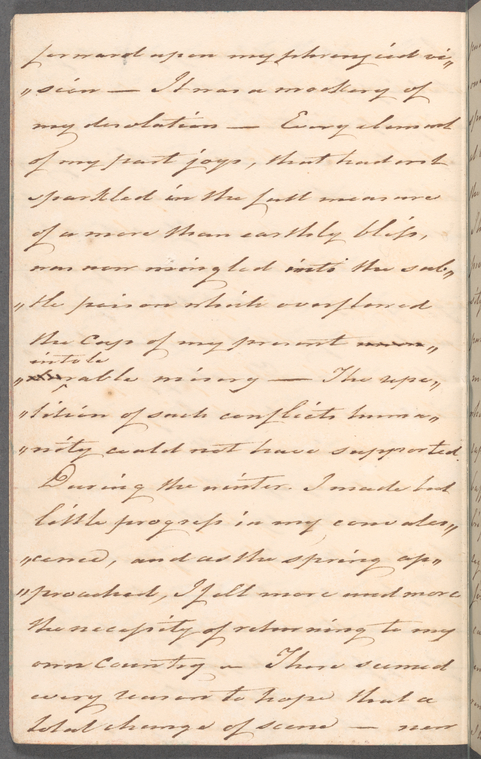 forward upon my phrenzied vi„
„sion — It was a mockery of
my desolation — Every element
of my past joys, that had erst
sparkled in the full measure
of a more than earthly bliss,
was now mingled into the sub„
„tle poison which overflowed
the Cup of my present
intole
„rable misery — The repe„
„tition of such conflicts huma„
„nity could not have supported.
During the winter I made but
little progress in my convales„
„cence, and as the spring ap„
„proached, I felt more and more
the necessity of returning to my
own Country — There seemed
every reason to hope that a
total change of scene — new